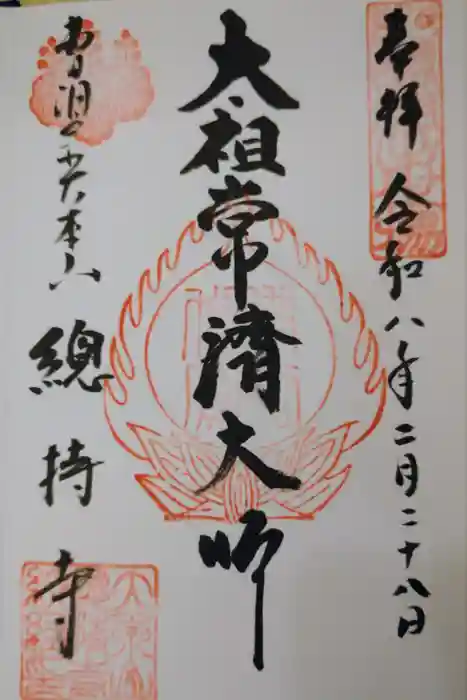 奉拝 令和八年二月二十八日
太祖常濟大師
曹洞宗大本山 總持寺